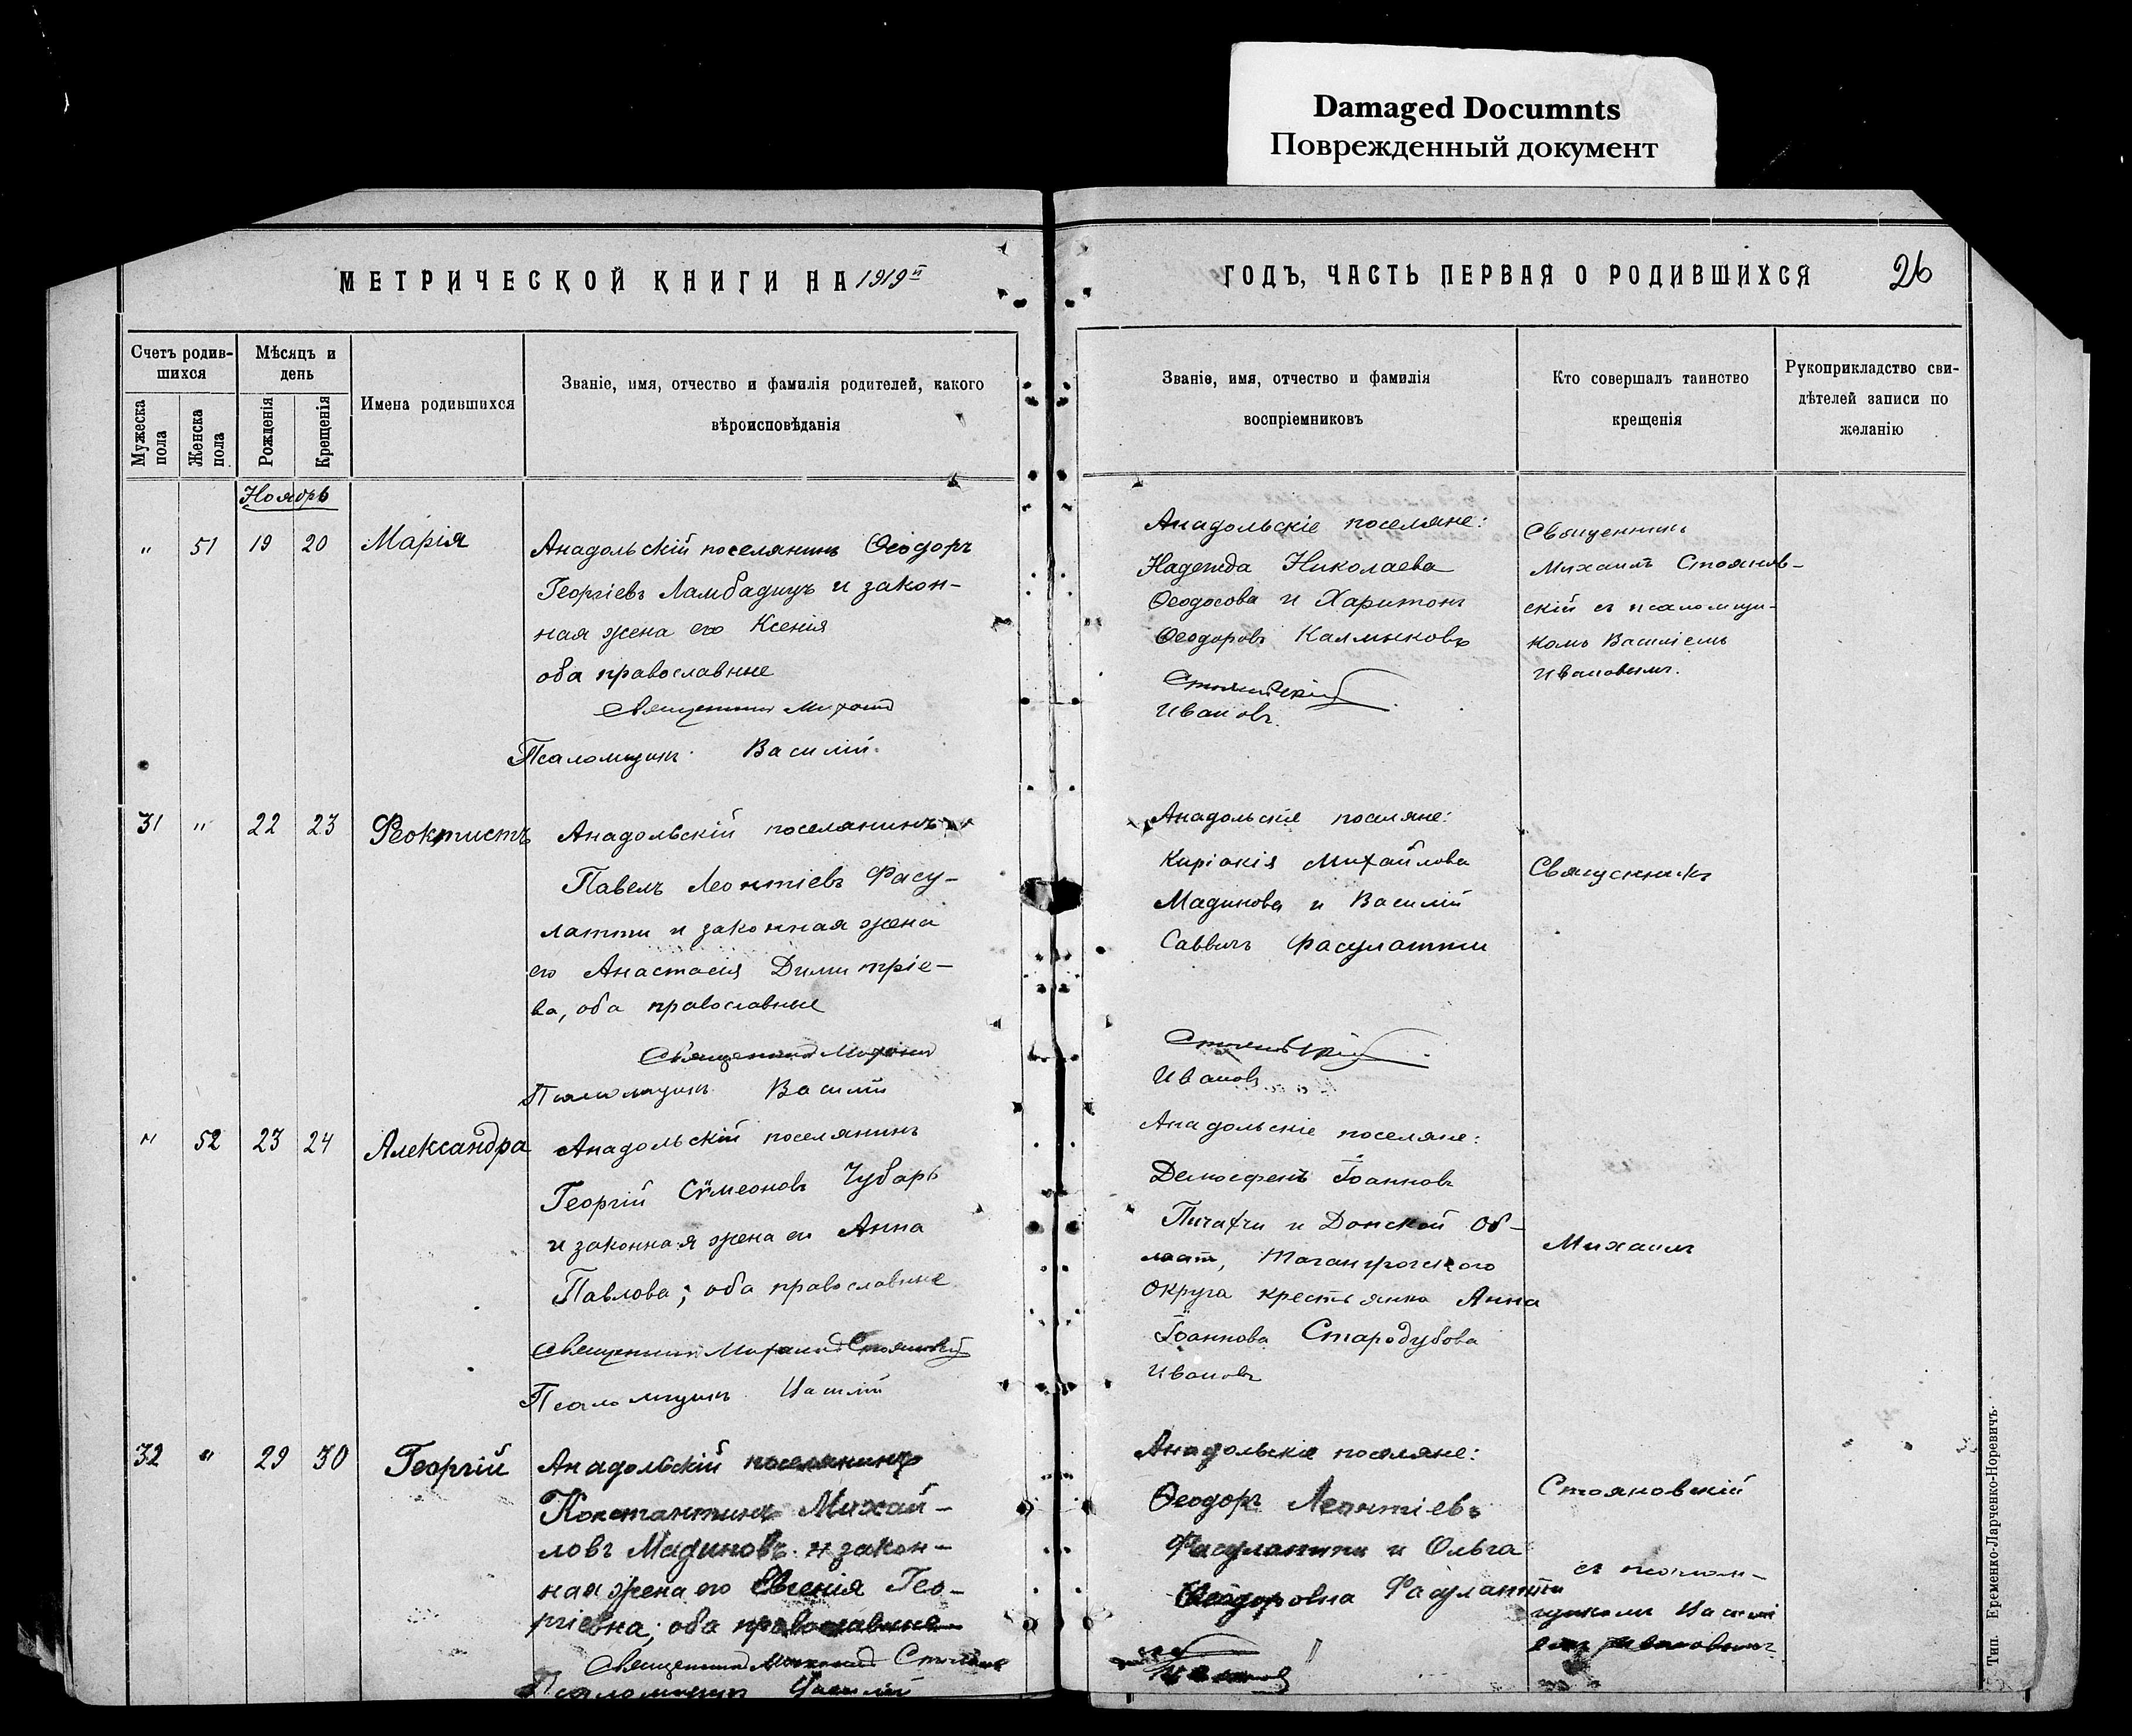 Damaged Documnts
Поврежденный документ
МЕТРИЧЕСКОЙ КНИГИ НА 1919й
ГОДЪ, ЧАСТЬ ПЕРВАЯ О РОДИВШИХСЯ
26
Счетъ родив-
шихся
Мужеска
пола
Женска
пола
Мѣсяцъ и
день
Рожденія
Крещенія
Имена родившихся
Званіе, имя, отчество и фамилія родителей, какого
вѣроисповѣданія
Званіе, имя, отчество и фамилія
воспріемниковъ
Кто совершалъ таинство
крещенія
Рукоприкладство сви-
дѣтелей записи по
желанію
Ноябрь
" 51 19 20 Марія
Анадольскій поселянинъ Ѳеодоръ
Георгіевъ Ламбадицъ и закон-
ная жена его Ксенія
оба православные
Священникъ Михаилъ
Псаломщикъ Василій
Анадольскіе поселяне:
Надежда Николаева
Ѳеодосова и Харитонъ
Ѳеодоровъ Калмыковъ
Стояновскій
Ивановъ.
Священникъ
Михаилъ Стоянов-
скій съ псаломщи-
комъ Василіемъ
Ивановымъ.
31 " 22 23 Феоктистъ
Анадольскій поселянинъ
Павелъ Леонтіевъ Фасу-
латти и законная жена
его Анастасія Димитріе-
ва, оба православные
Священникъ Михаилъ
Псаломщикъ Василій
Анадольскіе поселяне:
Киріакія Михайлова
Мадинова и Василій
Саввичъ Фасулатти
Стояновскій
Ивановъ
Священникъ
" 52 23 24 Александра
Анадольскій поселянинъ
Георгій Сѵмеоновъ Чубарь
и законная жена его Анна
Павлова; оба православные
Священникъ Михаилъ Стояновскій
Псаломщикъ Василій
Анадольскіе поселяне:
Демосфенъ Іоанновъ
Пичахчи и Донской Об-
ласти, Таганрогскаго
Округа крестьянка Анна
Іоаннова Стародубова
Ивановъ
Михаилъ
32 " 29 30 Георгій
Анадольскій поселянинъ
Константинъ Михай-
ловъ Мадиновъ и закон-
ная жена его Евгенія Гео-
ргіевна; оба православные
Священникъ Михаилъ Стоянов
Псаломщикъ Василій
Анадольскіе поселяне:
Ѳеодоръ Леонтіевъ
Фасулатти и Ольга
Ѳеодоровна Фасулатти
Ивановъ
Стояновскій
съ псалом-
щикомъ Василі
емъ Ивановымъ
Тип. Еременко-Ларченко-Норевичъ.